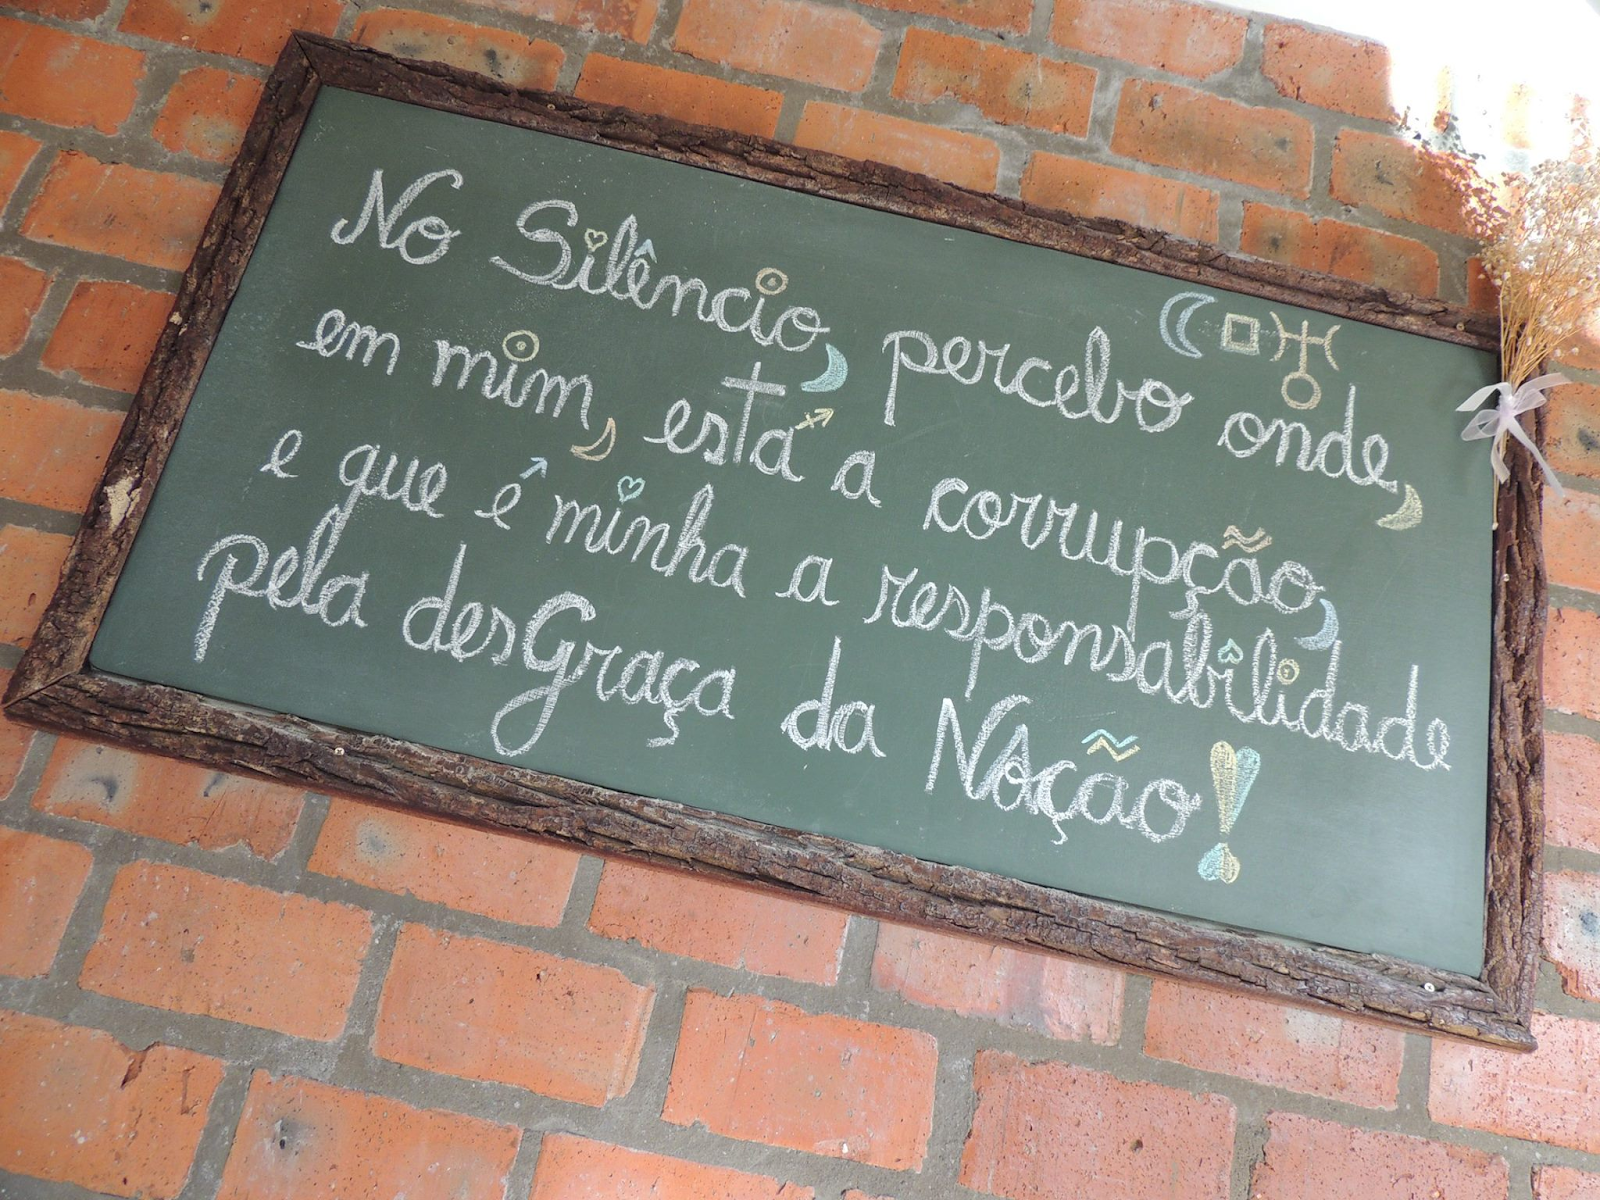 No Silêncio, percebo onde,
em mim, está a corrupção,
e que é minha a responsabilidade
pela desGraça da NAção!